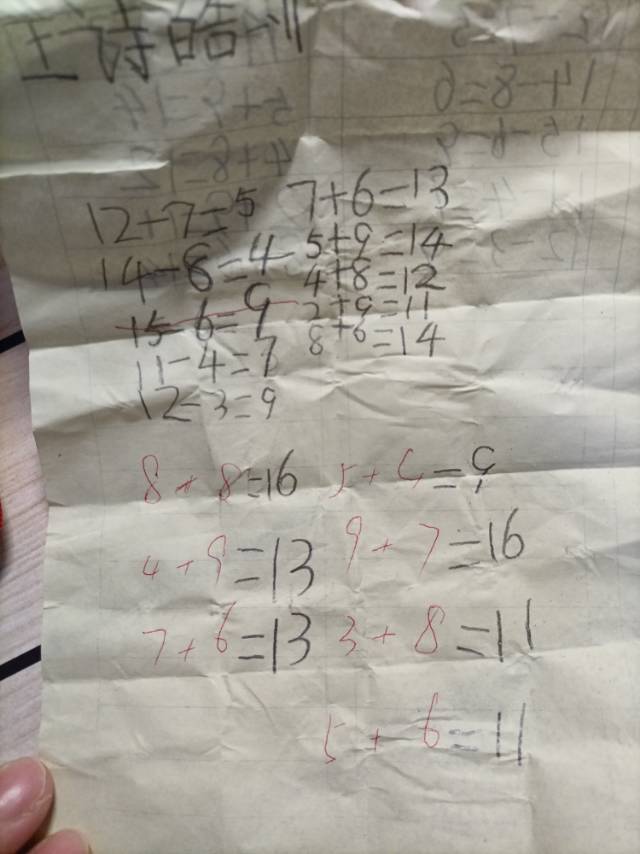 王诗皓
12+7=5 7+6=13
14-8=4 5+9=14
15-6=9 4+8=12
11-4=7 2+9=11
12-3=9 8+6=14
8+8=16 5+4=9
4+9=13 9+7=16
7+6=13 3+8=11
5+6=11